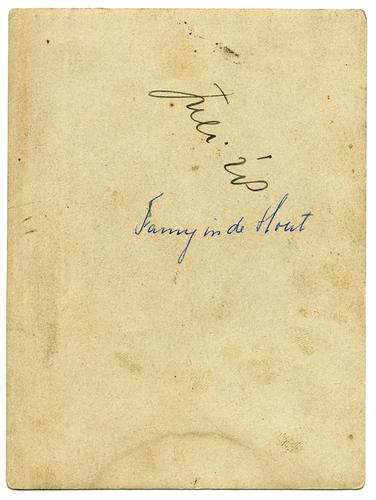 Juli '20
Fanny in de Hout